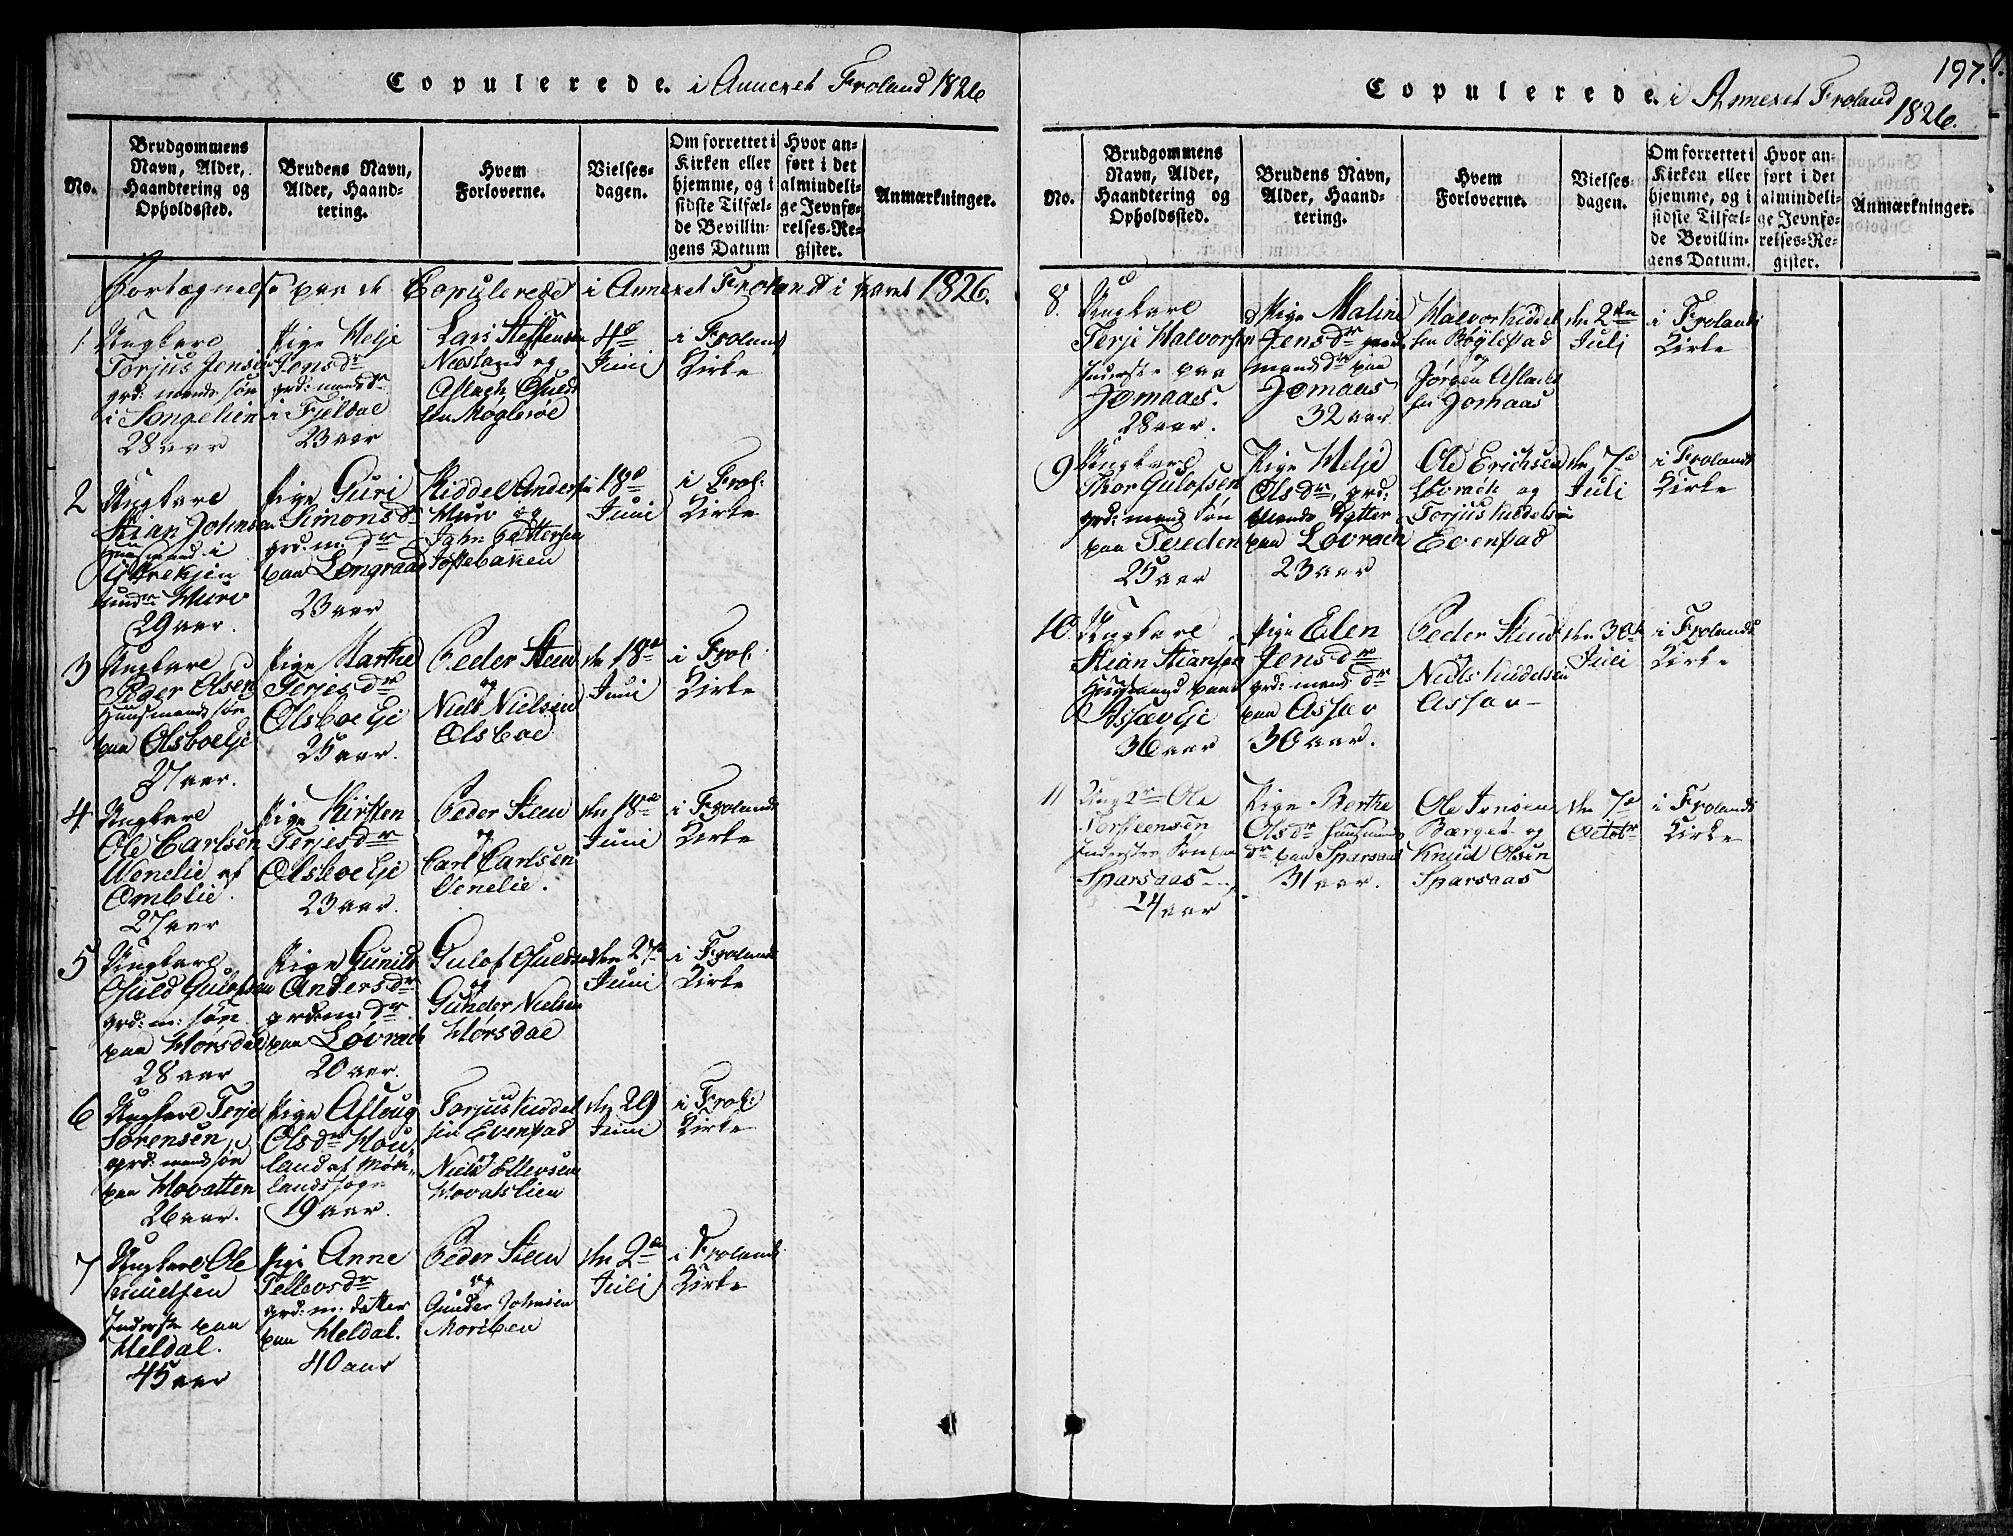 Copulerede. i Annexet Froland 1826
No.
Brudgommens Navn, Alder, Haandtering og Opholdssted.
Brudens Navn, Alder, Haandtering.
Hvem Forloverne.
Vielsesdagen.
Om forrettet i Kirken eller hjemme, og i sidste Tilfælde Bevillingens Datum
Hvor anført i det almindelige Jevnførelses-Register.
Anmærkninger.
Fortegnelse paa de Copulerede i Annexet Froland i Aaret 1826.
1 Ungkarl
Torjus Jensen
grd: mands søn
i Songelien
28 aar
Pige Helje
Jensdr
grd: mandsdr
i Fjeldal
23 aar
Lars Steffensen
Næsland og
Aslach
sen Mogleröe
4de
Juni
i Froland
Kirke
2 Ungkarl
Stian Johnsen
Huusmand i
under Huro
29 aar.
Pige Guri
Simonsdr
grd. m. dr
paa Longraae
23 aar
Kiddel Anders
Huro og
John Pettersen
Tostebakken
18de
Juni
i Frol:
Kirke
3 Ungkarl
Peder Olsen
Huusmands søn
paa Olsboe Eje
27 aar.
Pige Marthe
Terjesdr
Olsboe Eje
25 aar.
Peder Steen
og
Niels Nielsen
Olsboe
den 18de
Juni
i Frol:
Kirke
4 Ungkarl
Ole Carlsen
Wenelie af
Omblie
27 aar
Pige Kirsten
Terjesdr
Olsboe Eje
23 aar.
Peder Steen
og
Carl Carlsen
Venelie.
den 18de
Juni
i Frolands
Kirke
5 Ungkarl
Osuld Gulofsen
grd: m: søn
paa Hörsdal
28 aar
Pige Gunild
Andersdr
grd: m: dr
paa Lövrach
20 aar.
Gulof Osulds
og
Gunder Nielsen
Hörsdal
den 27de
Juni
i Frolands
Kirke
6 Ungkarl Terje
Sörensen
grd: mands søn
paa Hovatten
26 aar.
Pige Aslaug
Olsdr Hou-
land af
landssogn
19 aar.
Torjus Kiddel
sen Evenstad
og
Niels Ellevsen
Hovatslien
den 29
Juni
i Frol:
Kirke
7 Ungkarl Ole
Knudsen
Inderste paa
Heldal.
45 aar
Pige Anne
Tellevsdr
grd: m: datter
paa Heldal.
40 aar
Peder Steen
og
Gunder Johnsen
Moriben
den 2den
Juli
i Frolands
Kirke
197.
Copulerede. i Annexet Froland
1826.
No.
Brudgommens Navn, Alder, Haandtering og Opholdssted.
Brudens Navn, Alder, Haandtering.
Hvem Forloverne.
Vielsesdagen.
Om forrettet i Kirken eller hjemme, og i sidste Tilfælde Bevillingens Datum.
Hvor anført i det almindelige Jevnførelses-Register.
Anmærkninger.
8. Ungkarl
Terje Halvorsen
Inderste paa
Jomaas.
28 aar.
Pige Maline
Jensdr grd:
mandsdr paa
Jomaas
32 aar
Halvor Kiddel
sen Böylestad
og
Jörgen Aslach
sen Jomaas
den 2den
Juli
i Frolands
Kirke
9 Ungkarl
Thor Gulofsen
grd: mands Søn
paa Tereden
25 aar
Pige Helje
Olsdr, grd:
mands Datter
paa Lovrach
23 aar
Ole Erichsen
Lövrach og
Torjus Kiddelsen
Evenstad
den 7de
Juli
i Frolands
Kirke
10. Ungkarl
Stian Stiansen
Huusmand paa
Assæv Eje
36 aar
Pige Elen
Jensdr
grd: mands dr
paa Assæv
30 aar.
Peder Steen
og
Niels Kiddelsen
Assæv
den 30te
Juli
i Frolands
Kirke
11 Ungkr Ole
Torsteensen
Inderstes Søn paa
Sparsaas
24 aar
Pige Berthe
Olsdr huusmands
dr paa Sparsaas
31 aar.
Ole Jensen
Bærget og
Knud Olsen
Sparsaas
den 7de
Octobr
i Frolands
Kirke